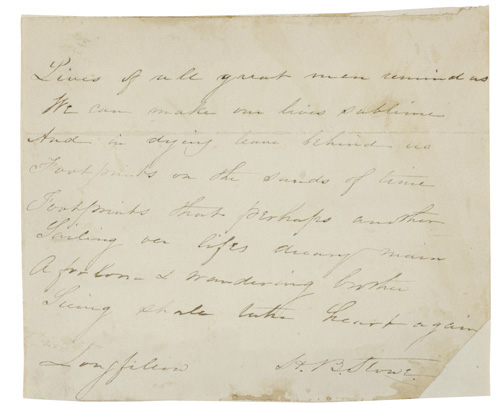 Lives of all great men remind us
We can make our lives sublime
And in dying leave behind us
Footprints on the sands of time
Footprints that perhaps another
Sailing oer lifes dreary main
A forlorn & wandering brother
Seeing shall take heart again
Longfellow H. B. Stowe.